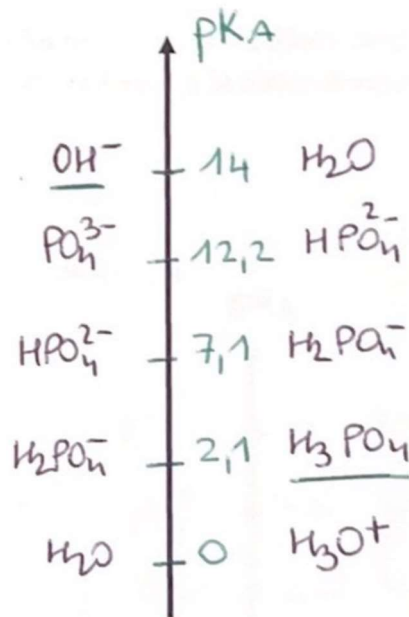 pKA
OH⁻ 14 H₂O
PO₄³⁻ 12,2 HPO₄²⁻
HPO₄²⁻ 7,1 H₂PO₄⁻
H₂PO₄⁻ 2,1 H₃PO₄
H₂O 0 H₃O⁺